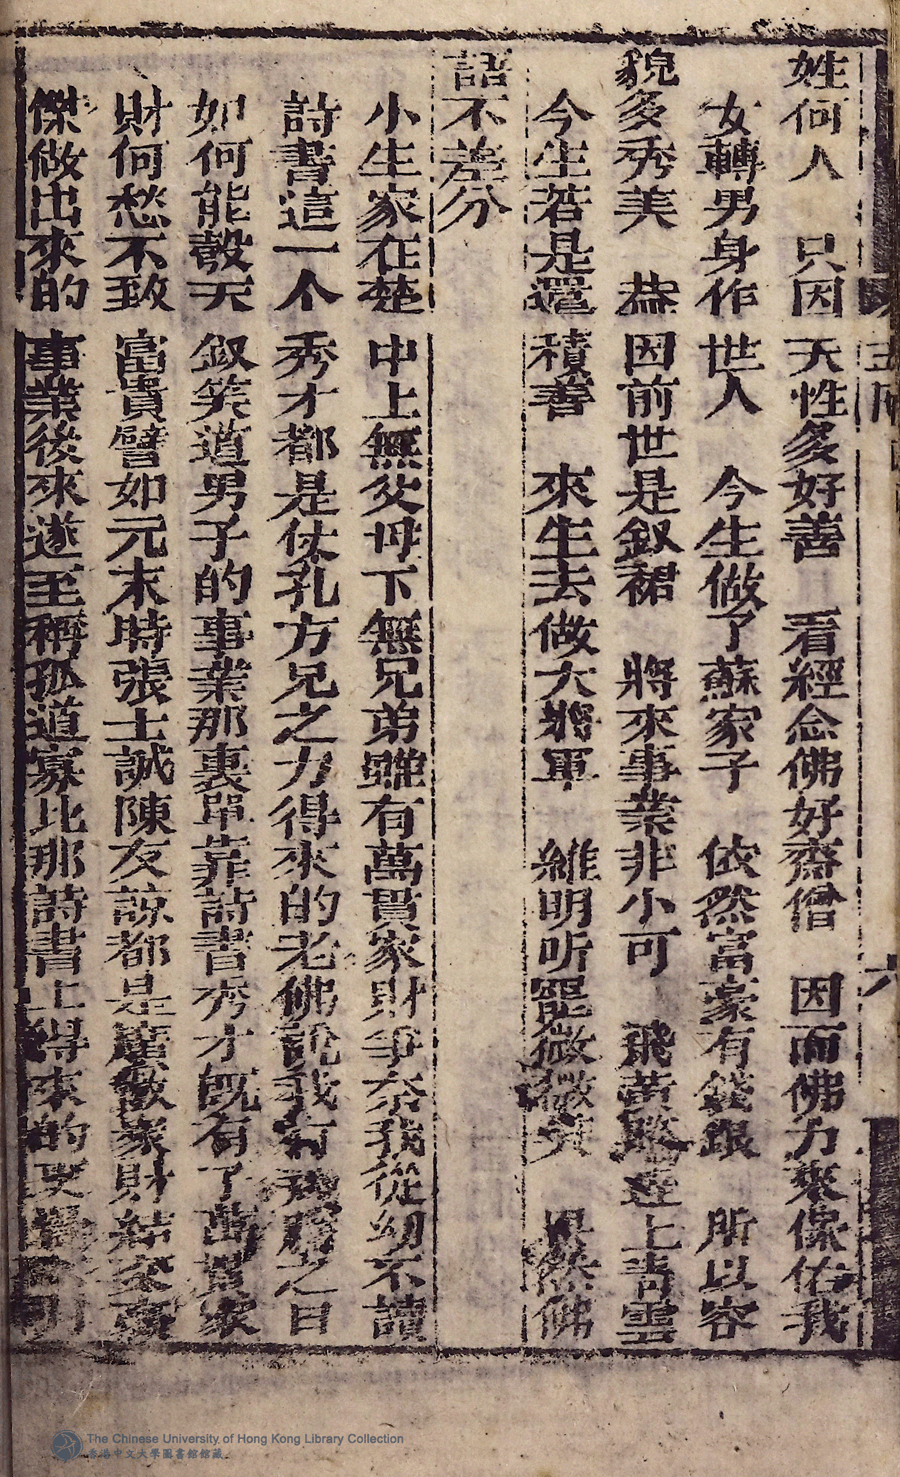 姓何人　只因天性多好善　看經念佛好齋僧　因而佛力來保佑我
女轉男身作世人　今生做了蘇家子　依然富豪有錢跟　所以容
貌多秀美　恭因前世是釵裙　將來事業非小可　飛黃路逹上青雲
今生若是還積善　來生去做大將軍　維明听罷微微笑　果然佛
語不差分
小生家在楚中上無父母下無兄弟雖有萬貫家財爭奈我從幼不讀
詩書這一个秀才都是仗孔方兄之力得來的老佛說我有飛騰之日
如何能彀天釵笑道男子的事業那裏單靠詩書秀才既有了萬貫家
財何愁不致富貴譬如元末時張士誠陳友諒都是廣散家財結交豪
傑做出來的事業後來遂至稱孤道寡比那詩書上得來的更
六
The Chinese University of Hong Kong Library Collection
香港中文大學圖書館館藏